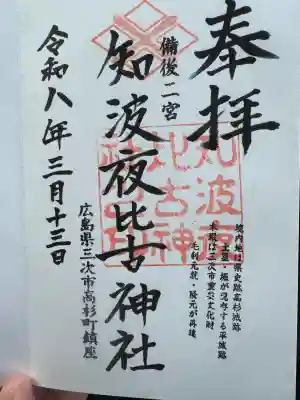 奉拝
備後二宮
知波夜比古神社
知波夜
比古神
社之印
境内地は県史跡高杉城跡
土塁・堀が現存する平城跡
本殿は三次市重要文化財
毛利元就・隆元が再建
広島県三次市高杉町鎮座
令和八年三月十三日